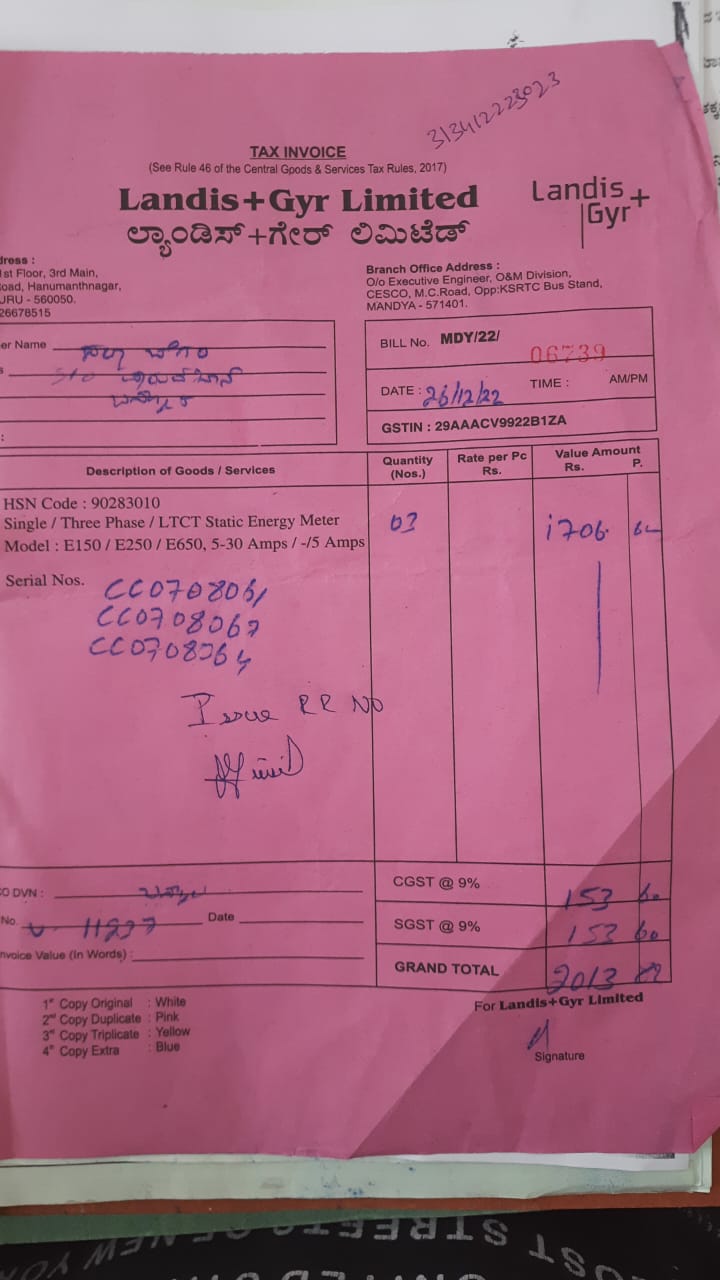 313412223023
TAX INVOICE
(See Rule 46 of the Central Goods & Services Tax Rules, 2017)
Landis+Gyr Limited
ಲ್ಯಾಂಡಿಸ್+ಗೇರ್ ಲಿಮಿಟೆಡ್
Landis+
Gyr
dress :
1st Floor, 3rd Main,
oad, Hanumanthnagar,
URU - 560050.
26678515
Branch Office Address :
O/o Executive Engineer, O&M Division,
CESCO, M.C.Road, Opp:KSRTC Bus Stand,
MANDYA - 571401.
er Name
BILL No. MDY/22/ 06739
DATE : 26/12/22 TIME : AM/PM
GSTIN : 29AAACV9922B1ZA
Description of Goods / Services Quantity (Nos.) Rate per Pc Rs. Value Amount Rs. P.
HSN Code : 90283010
Single / Three Phase / LTCT Static Energy Meter 03 1706.
Model : E150 / E250 / E650, 5-30 Amps / -/5 Amps
Serial Nos.
CC0708061
CC0708067
Issue RR NO
O DVN :
No. Date
nvoice Value (In Words) :
CGST @ 9% 153 60
SGST @ 9% 153 60
GRAND TOTAL 2013
1st Copy Original : White
2nd Copy Duplicate : Pink
3rd Copy Triplicate : Yellow
4th Copy Extra : Blue
For Landis+Gyr Limited
Signature